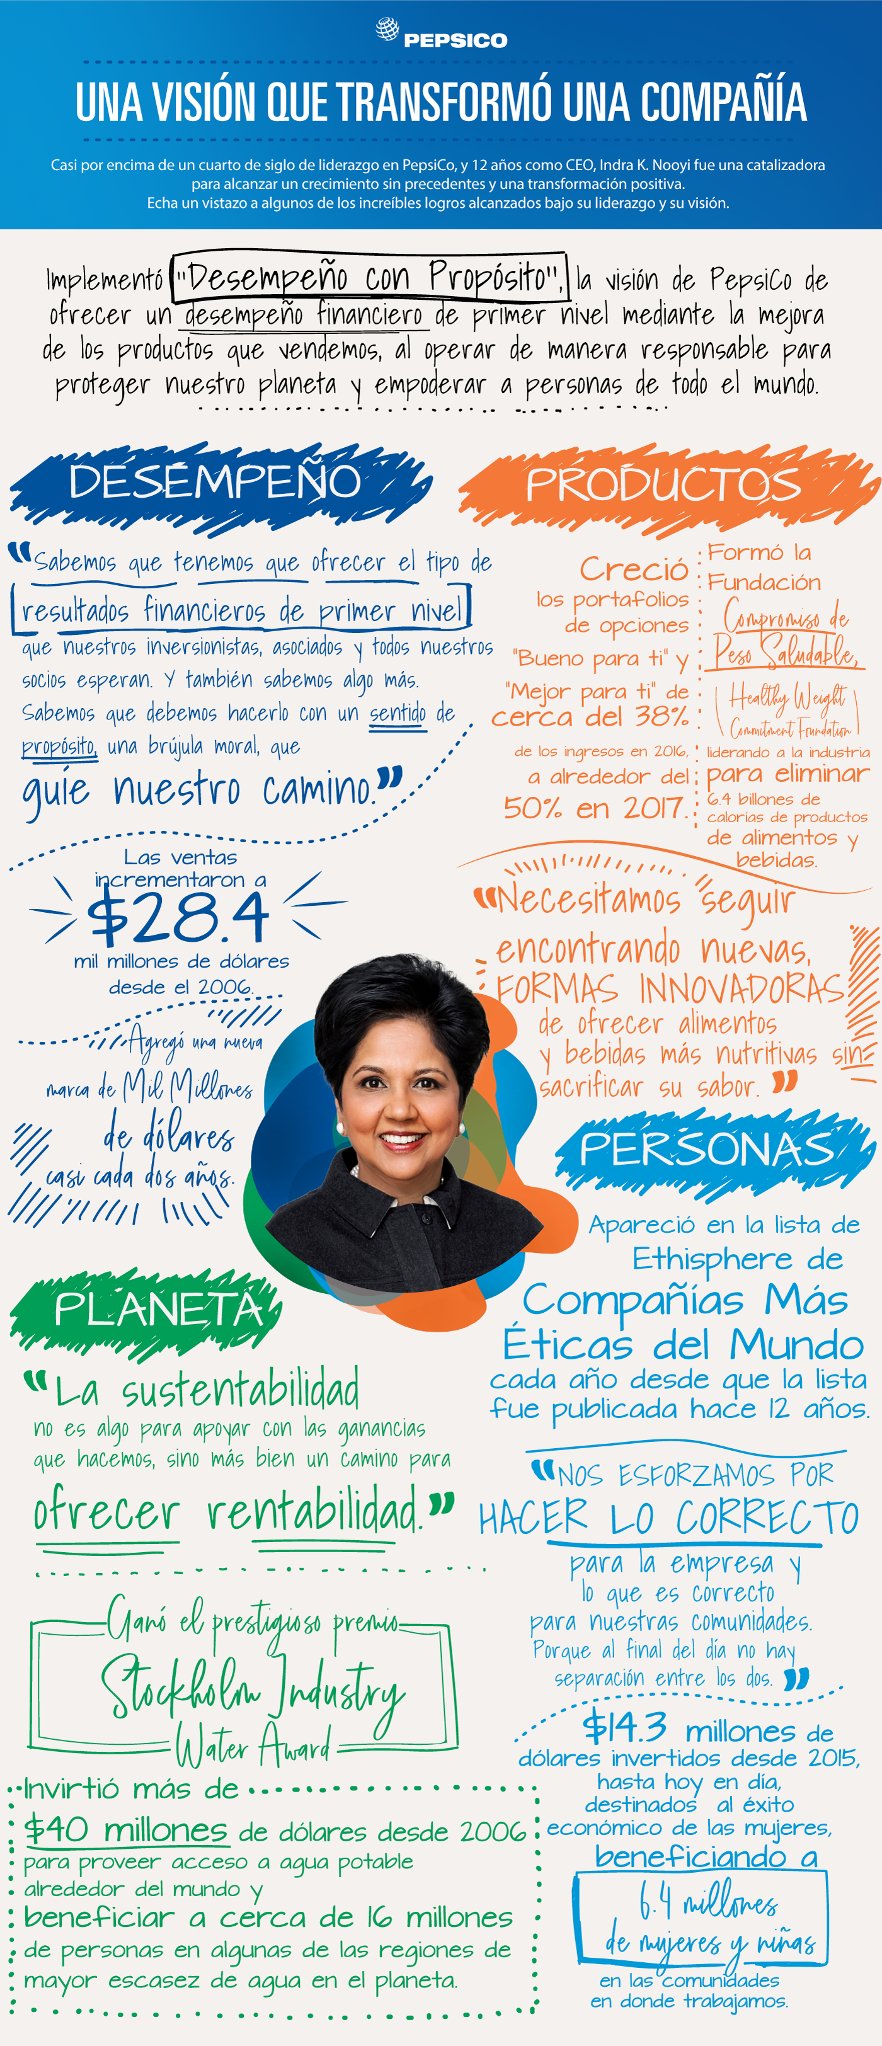 PEPSICO
UNA VISIÓN QUE TRANSFORMÓ UNA COMPAÑÍA
Casi por encima de un cuarto de siglo de liderazgo en PepsiCo, y 12 años como CEO, Indra K. Nooyi fue una catalizadora
para alcanzar un crecimiento sin precedentes y una transformación positiva.
Echa un vistazo a algunos de los increíbles logros alcanzados bajo su liderazgo y su visión.
Implementó "Desempeño con Propósito", la visión de PepsiCo de
ofrecer un desempeño financiero de primer nivel mediante la mejora
de los productos que vendemos, al operar de manera responsable para
proteger nuestro planeta y empoderar a personas de todo el mundo.
DESEMPEÑO
"Sabemos que tenemos que ofrecer el tipo de
resultados financieros de primer nivel
que nuestros inversionistas, asociados y todos nuestros
socios esperan. Y también sabemos algo más.
Sabemos que debemos hacerlo con un sentido de
propósito, una brújula moral, que
guíe nuestro camino."
Las ventas
incrementaron a
$28.4
mil millones de dólares
desde el 2006.
Agregó una nueva
marca de Mil Millones
de dólares
casi cada dos años.
PRODUCTOS
Creció
los portafolios
de opciones
"Bueno para ti" y
"Mejor para ti" de
cerca del 38%
de los ingresos en 2016,
a alrededor del
50% en 2017.
Formó la
Fundación
Compromiso de
Peso Saludable,
(Healthy Weight
Commitment Foundation)
liderando a la industria
para eliminar
6.4 billones de
calorías de productos
de alimentos y
bebidas.
"Necesitamos seguir
encontrando nuevas,
FORMAS INNOVADORAS
de ofrecer alimentos
y bebidas más nutritivas sin
sacrificar su sabor."
PERSONAS
Apareció en la lista de
Ethisphere de
Compañías Más
Éticas del Mundo
cada año desde que la lista
fue publicada hace 12 años.
"NOS ESFORZAMOS POR
HACER LO CORRECTO
para la empresa y
lo que es correcto
para nuestras comunidades.
Porque al final del día no hay
separación entre los dos."
$14.3 millones de
dólares invertidos desde 2015,
hasta hoy en día,
destinados al éxito
económico de las mujeres,
beneficiando a
6.4 millones
de mujeres y niñas
en las comunidades
en donde trabajamos.
PLANETA
"La sustentabilidad
no es algo para apoyar con las ganancias
que hacemos, sino más bien un camino para
ofrecer rentabilidad."
Ganó el prestigioso premio
Stockholm Industry
Water Award
Invirtió más de
$40 millones de dólares desde 2006
para proveer acceso a agua potable
alrededor del mundo y
beneficiar a cerca de 16 millones
de personas en algunas de las regiones de
mayor escasez de agua en el planeta.